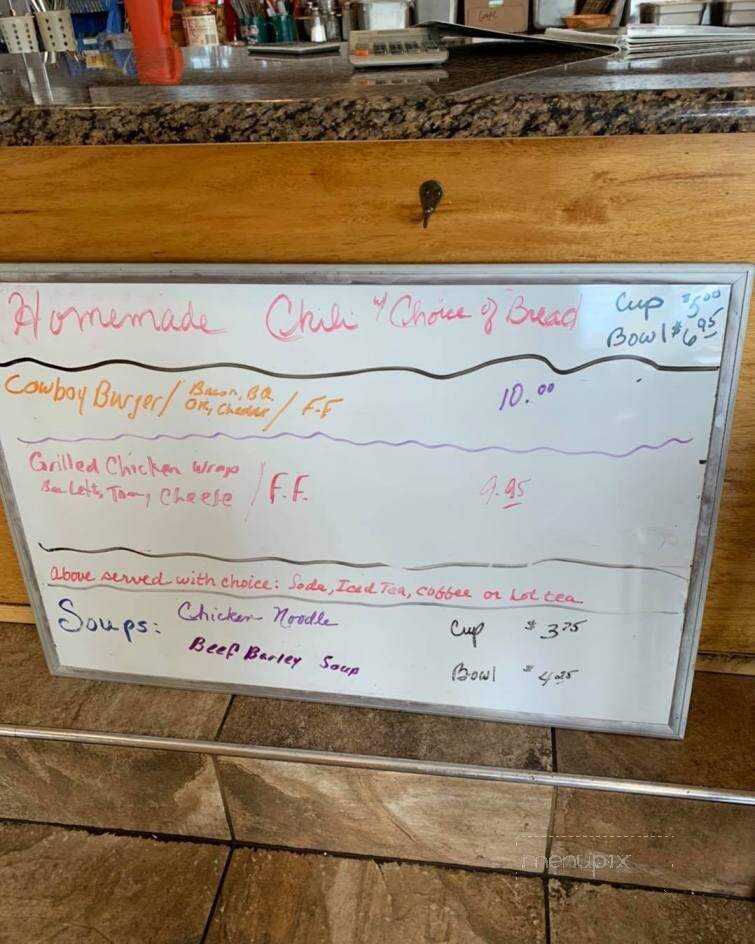 Homemade Chili w/ Choice of Bread Cup $5.00
Bowl $6.95
Cowboy Burger / Bacon, BQ. / F.F 10.00
Chedar
Grilled Chicken Wrap / F.F. 9.95
Tom, Cheese
above served with choice: Soda, Iced Tea, coffee or hot tea
Soups: Chicken Noodle Cup $3.75
Beef Barley Soup Bowl $4.25
menupix